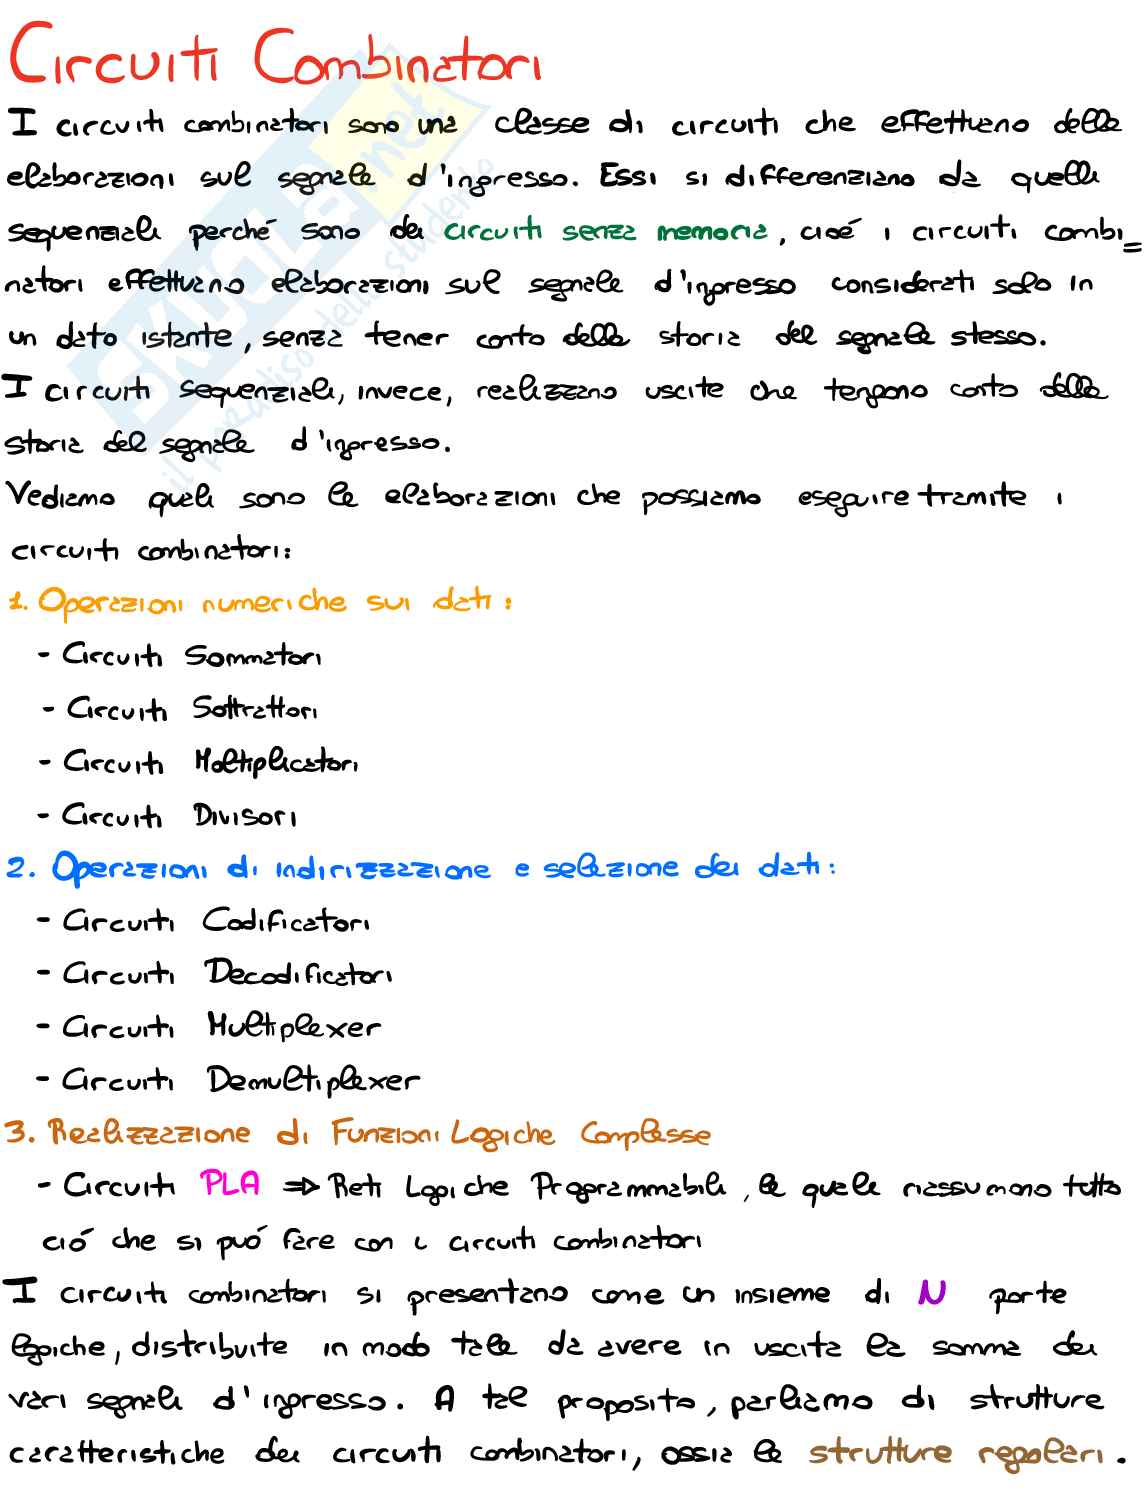 Circuiti Combinatori
I circuiti combinatori sono una classe di circuiti che effettuano delle
elaborazioni sul segnale d'ingresso. Essi si differenziano da quelli
sequenziali perché sono dei circuiti senza memoria, cioé i circuiti combi=
natori effettuano elaborazioni sul segnale d'ingresso considerati solo in
un dato istante, senza tener conto della storia del segnale stesso.
I circuiti sequenziali, invece, realizzano uscite che tengono conto della
storia del segnale d'ingresso.
Vediamo quali sono le elaborazioni che possiamo eseguire tramite i
circuiti combinatori:
1. Operazioni numeriche sui dati:
- Circuiti Sommatori
- Circuiti Sottrattori
- Circuiti Moltiplicatori
- Circuiti Divisori
2. Operazioni di indirizzazione e selezione dei dati:
- Circuiti Codificatori
- Circuiti Decodificatori
- Circuiti Multiplexer
- Circuiti Demultiplexer
3. Realizzazione di Funzioni Logiche Complesse
- Circuiti PLA => Reti Logiche Programmabili, le quali riassumono tutto
ció che si puó fare con i circuiti combinatori
I circuiti combinatori si presentano come un insieme di N porte
logiche, distribuite in modo tale da avere in uscita la somma dei
vari segnali d'ingresso. A tal proposito, parliamo di strutture
caratteristiche dei circuiti combinatori, ossia le strutture regolari.
SKUOLA.net
il paradiso dello studente